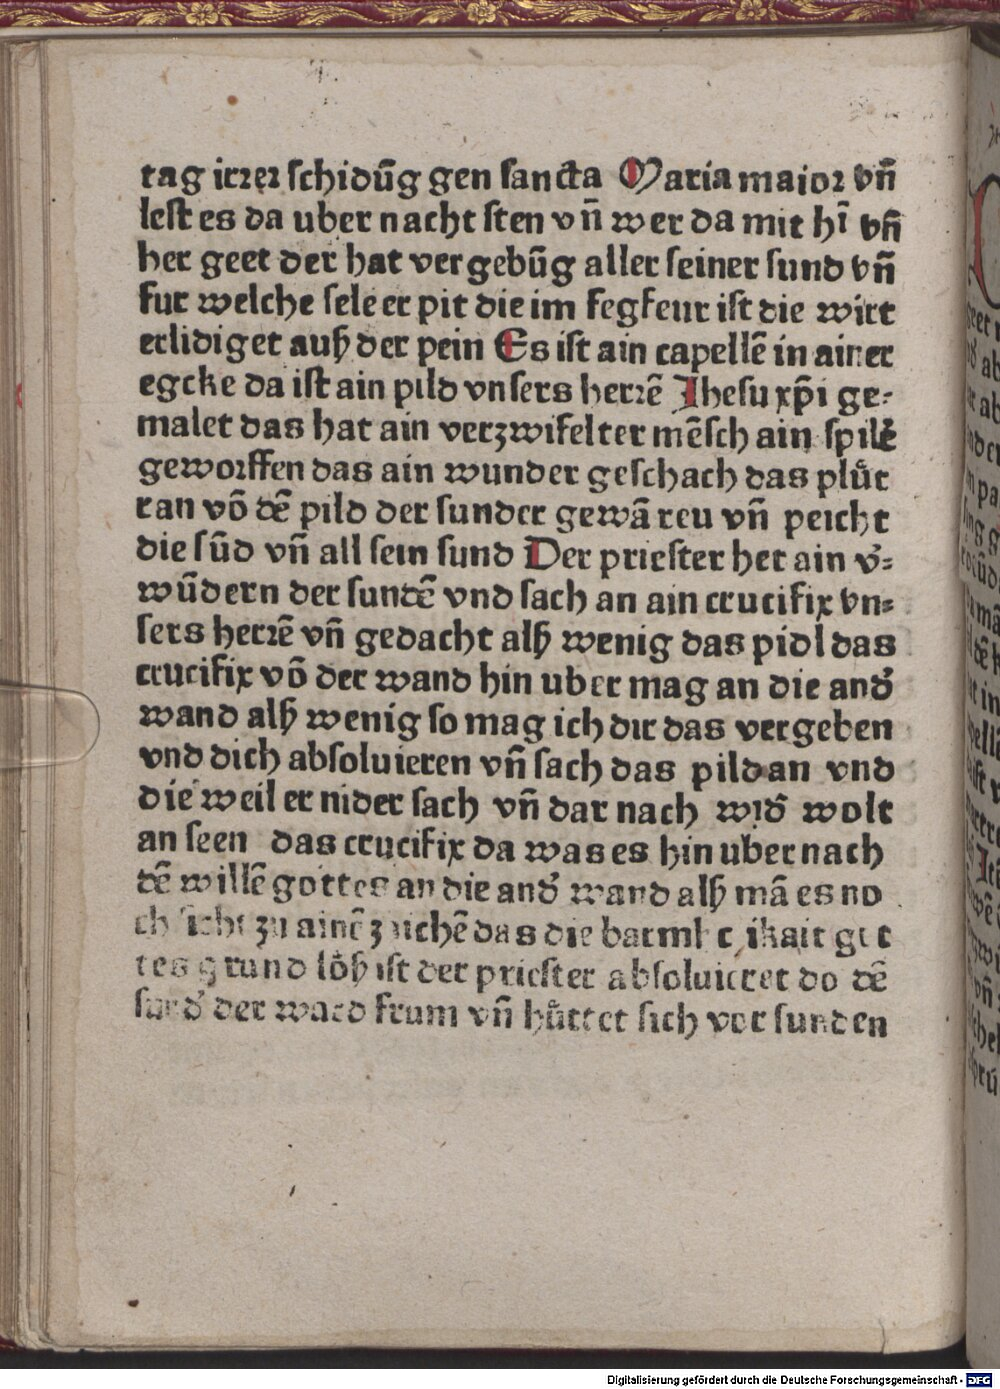 tag irrer schidūg gen sancta Maria maior vñ
lest es da uber nacht sten vñ wer da mit hī vñ
her geet der hat vergebūg aller seiner sund vñ
fur welche sele er pit die im fegfeur ist die wirt
erlidiget auß der pein Es ist ain capellē in ainer
egcke da ist ain pild vnsers herrē Jhesu xp̄i ge⸗
malet das hat ain verzwifelter mēsch ain spilē
geworffen das ain wunder geschach das plůt
ran vō dē pild der sunder gewā reu vñ peicht
die sūd vñ all sein sund Der priester het ain v̄⸗
wūdern der suntē vnd sach an ain crucifix vn⸗
sers herrē vñ gedacht alß wenig das pidl das
crucifix vō der wand hin uber mag an die and̛
wand alß wenig so mag ich dir das vergeben
vnd dich absoluieren vñ sach das pild an vnd
die weil er nider sach vñ dar nach wid̛ wolt
an seen das crucifix da was es hin uber nach
dē willē gottes an die and̛ wand alß mā es no
ch sicht zu ainē zaichē das die barmhertzikait got
tes grundlöß ist der priester absoluieret do dē
sund̛ der ward frum vñ hůttet sich vor sunden
Digitalisierung gefördert durch die Deutsche Forschungsgemeinschaft - DFG